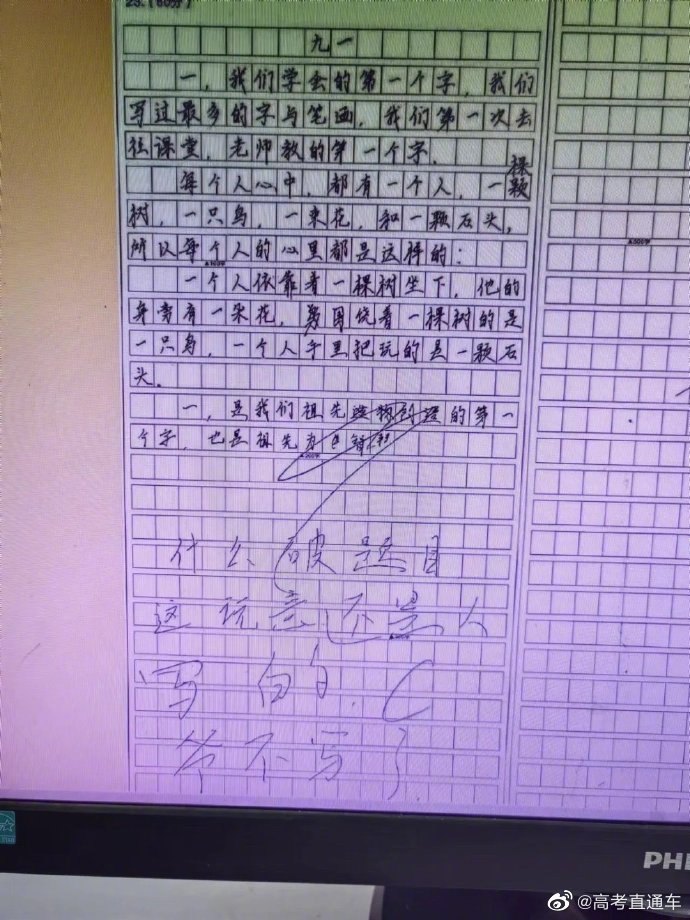 23.(60分)
九一
一，我们学会的第一个字，我们
写过最多的字与笔画，我们第一次去
往课堂，老师教的第一个字．
每个人心中，都有一个人，一棵颗
树，一只鸟，一束花，和一颗石头，
所以每个人的心里都是这样的：
一个人依靠着一棵树坐下，他的
身旁有一朵花，围绕着一棵树的是
一只鸟，一个人手里把玩的是一颗石
头．
一，是我们祖先的第一
个字，也是祖先
什么破题目
这玩意还是人
写的，C
爷不写了
PHI
@高考直通车